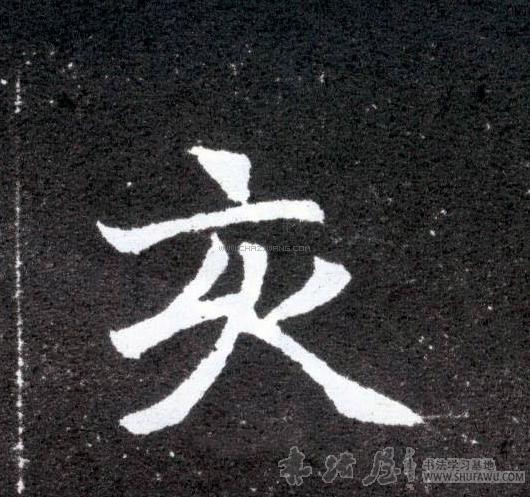 亥
WWW.CHAZIWANG.COM
书法学习基地
WWW.SHUFAWU.COM